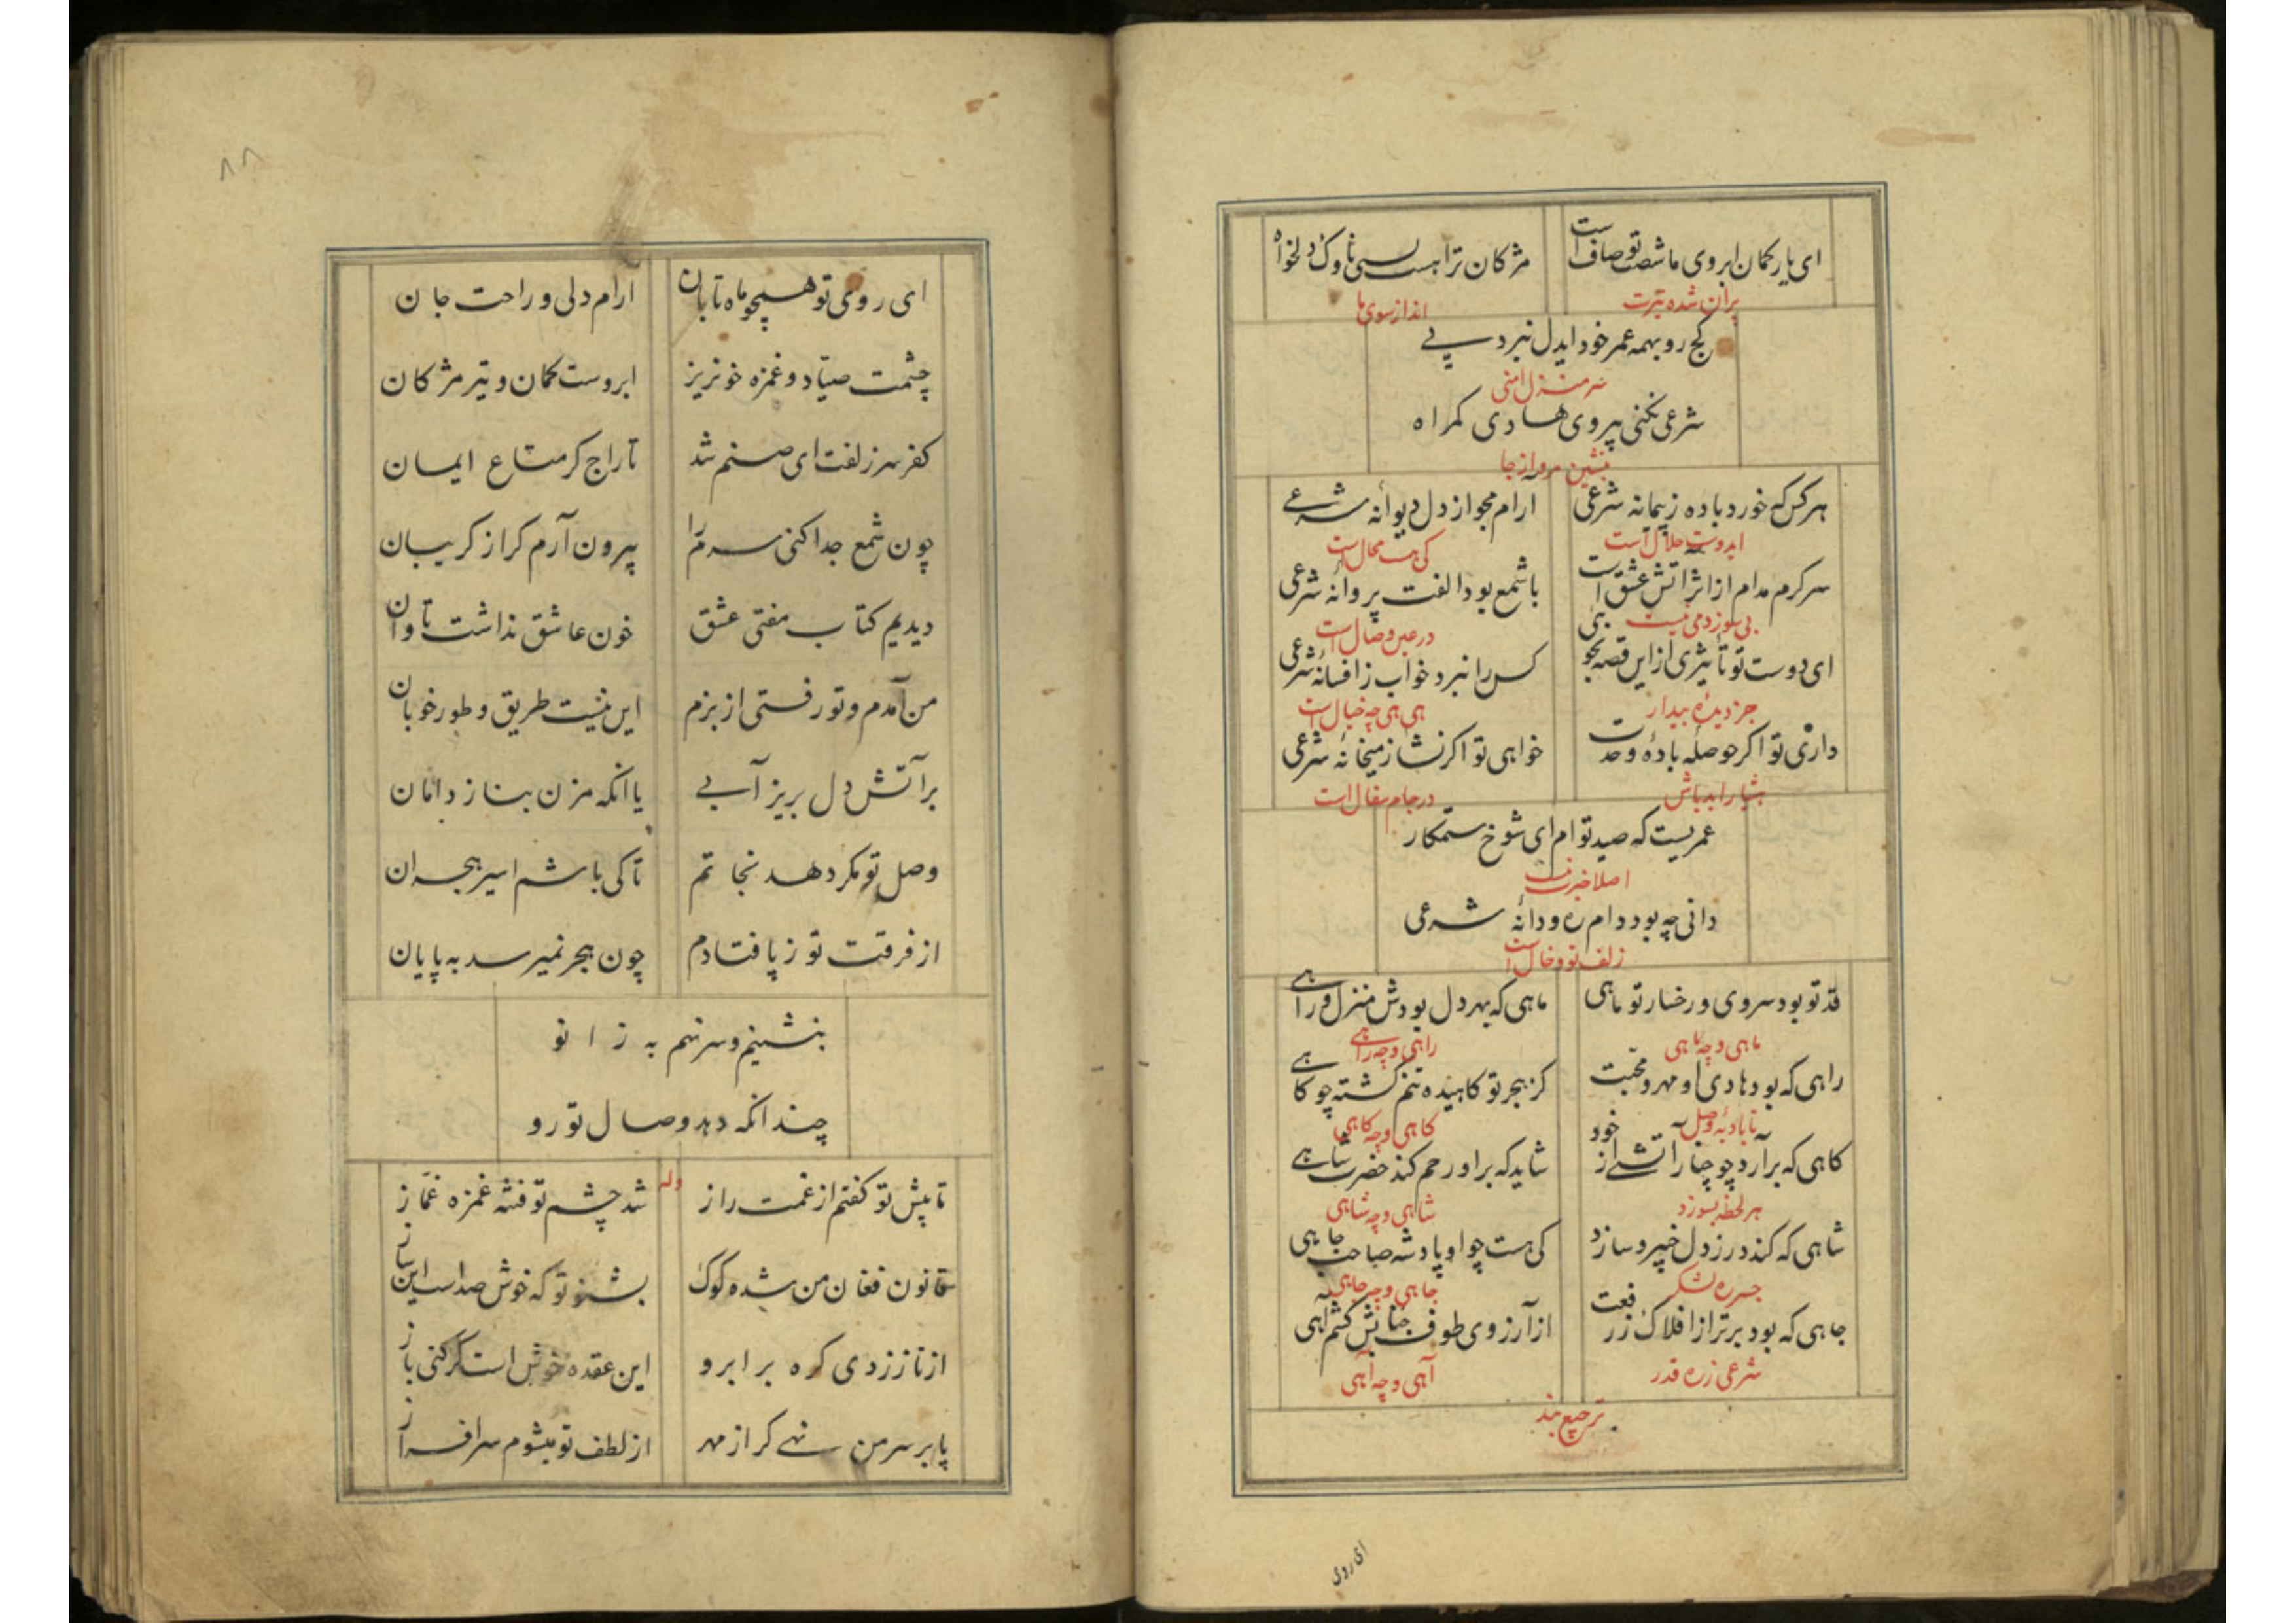 ای یار کمان ابروی ما شصت تو صاف است مژکان ترا هست بسی ناوک دلخواه
پران شده تیرت انداز سوی ما
کج رو بهمه عمر خود ایدل نبرد پی
سر منزل امنی
شرعی نکنی پیروی هادی کمراه
بنشین مرو از جا
هر کس که خورد باده ز پیمانه شرعی ارام مجو از دل دیوانه شرعی
ایدوست حلال است کی هست محال است
سرکرم مدام از اثر آتش عشق است با شمع بود الفت پروانه شرعی
بی سوز دمی نیست در عین وصال است
ای دوست تو تأثیری از این قصه بجو کس را نبرد خواب ز افسانه شرعی
جز دیده بیدار هی هی چه خیال است
داری تو اکر حوصله باده وحدت خواهی تو اکر نشا ز میخانه شرعی
هشیار ابد باش در جام سفال است
عمریست که صید توام ای شوخ ستمکار
اصلا خبرت نیست
دانی چه بود دام ره و دانه شرعی
زلف تو و خال است
قد تو بود سروی و رخسار تو ماهی ماهی که بهر دل بودش منزل و راهی
ماهی و چه ماهی راهی و چه راهی
راهی که بود هادی او مهر و محبت کز هجر تو کاهیده تنم کشته چو کاهی
تا بادیه وصل کاهی و چه کاهی
کاهی که برآرد چو چنار آتشی از خود شاید که براو رحم کند حضرت شاهی
هر لحظه بسوزد شاهی و چه شاهی
شاهی که کند درز دل خیبر و سازد کی هست چو او پادشه صاحب جاهی
جاهی و چه جاهی
جاهی که بود برتر از افلاک ز رفعت از آرزوی طوف جنابش کشم آهی
شرعی زره قدر آهی و چه آهی
ترجیع بند
ای روی
۸۸
ای روی تو همچو ماه تابان ارام دلی و راحت جان
چشمت صیاد و غمزه خونریز ابروست کمان و تیر مژکان
کفر سر زلفت ای صنم شد تاراج کر متاع ایمان
چون شمع جدا کنی سرم را بیرون آرم کر از کریبان
دیدیم کتاب مفتی عشق خون عاشق نداشت تاوان
من آمدم و تو رفتی از بزم این نیست طریق و طور خوبان
بر آتش دل بریز آبی یا انکه مزن بناز دامان
وصل تو مکر دهد نجاتم تا کی باشم اسیر هجران
از فرقت تو ز پا فتادم چون هجر نمیرسد به پایان
بنشینم و سر نهم به زانو
چندانکه دهد وصال تو رو
وله
تا پیش تو کفتم از غمت راز شد چشم تو فتنه غمزه غماز
قانون فغان من شده کوک بشنو تو که خوش صداست این ساز
از ناز زدی کره بر ابرو این عقده خوش است کر کنی باز
پا بر سر من نهی کر از مهر از لطف تو میشوم سرافراز